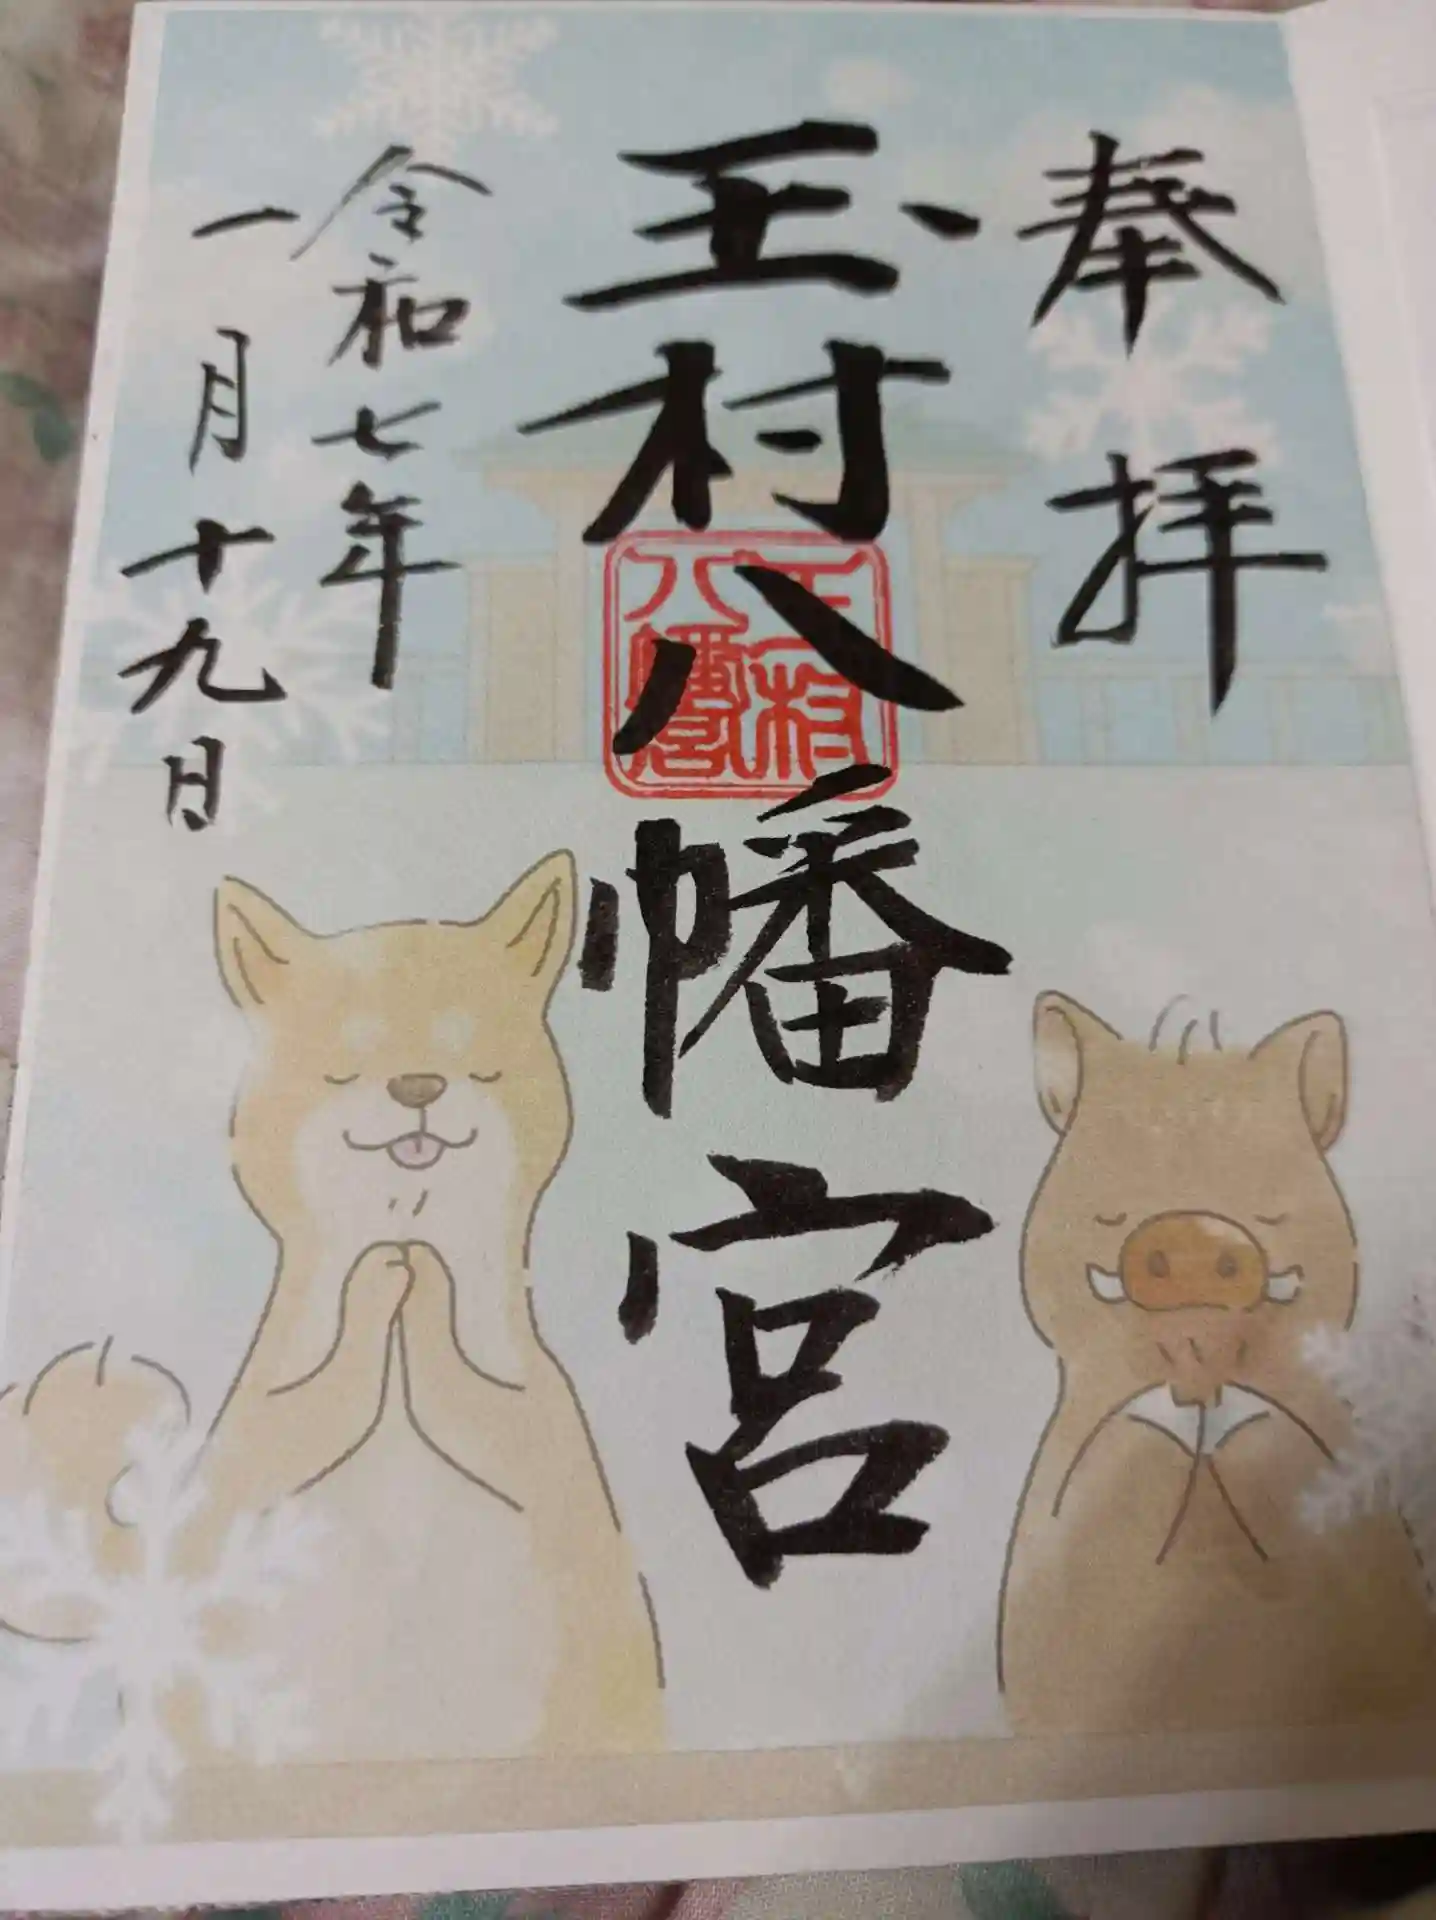 奉拝
玉村八幡宮
玉村
八幡宮
令和七年
一月十九日